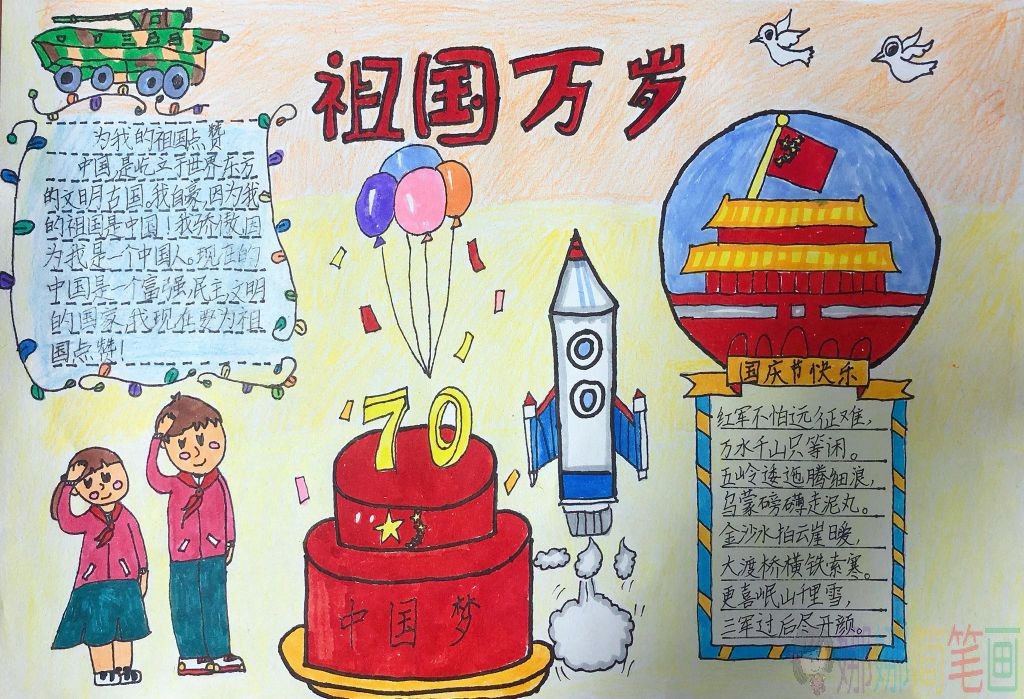 祖国万岁
为我的祖国点赞
中国是屹立于世界东方
的文明古国。我自豪,因为我
的祖国是中国!我骄傲,因
为我是一个中国人。现在的
中国是一个富强,民主,文明
的国家,我现在要为祖
国点赞!
70
中国梦
国庆节快乐
红军不怕远征难,
万水千山只等闲。
五岭逶迤腾细浪,
乌蒙磅礴走泥丸。
金沙水拍云崖暖,
大渡桥横铁索寒。
更喜岷山千里雪,
三军过后尽开颜。
娜娜简笔画